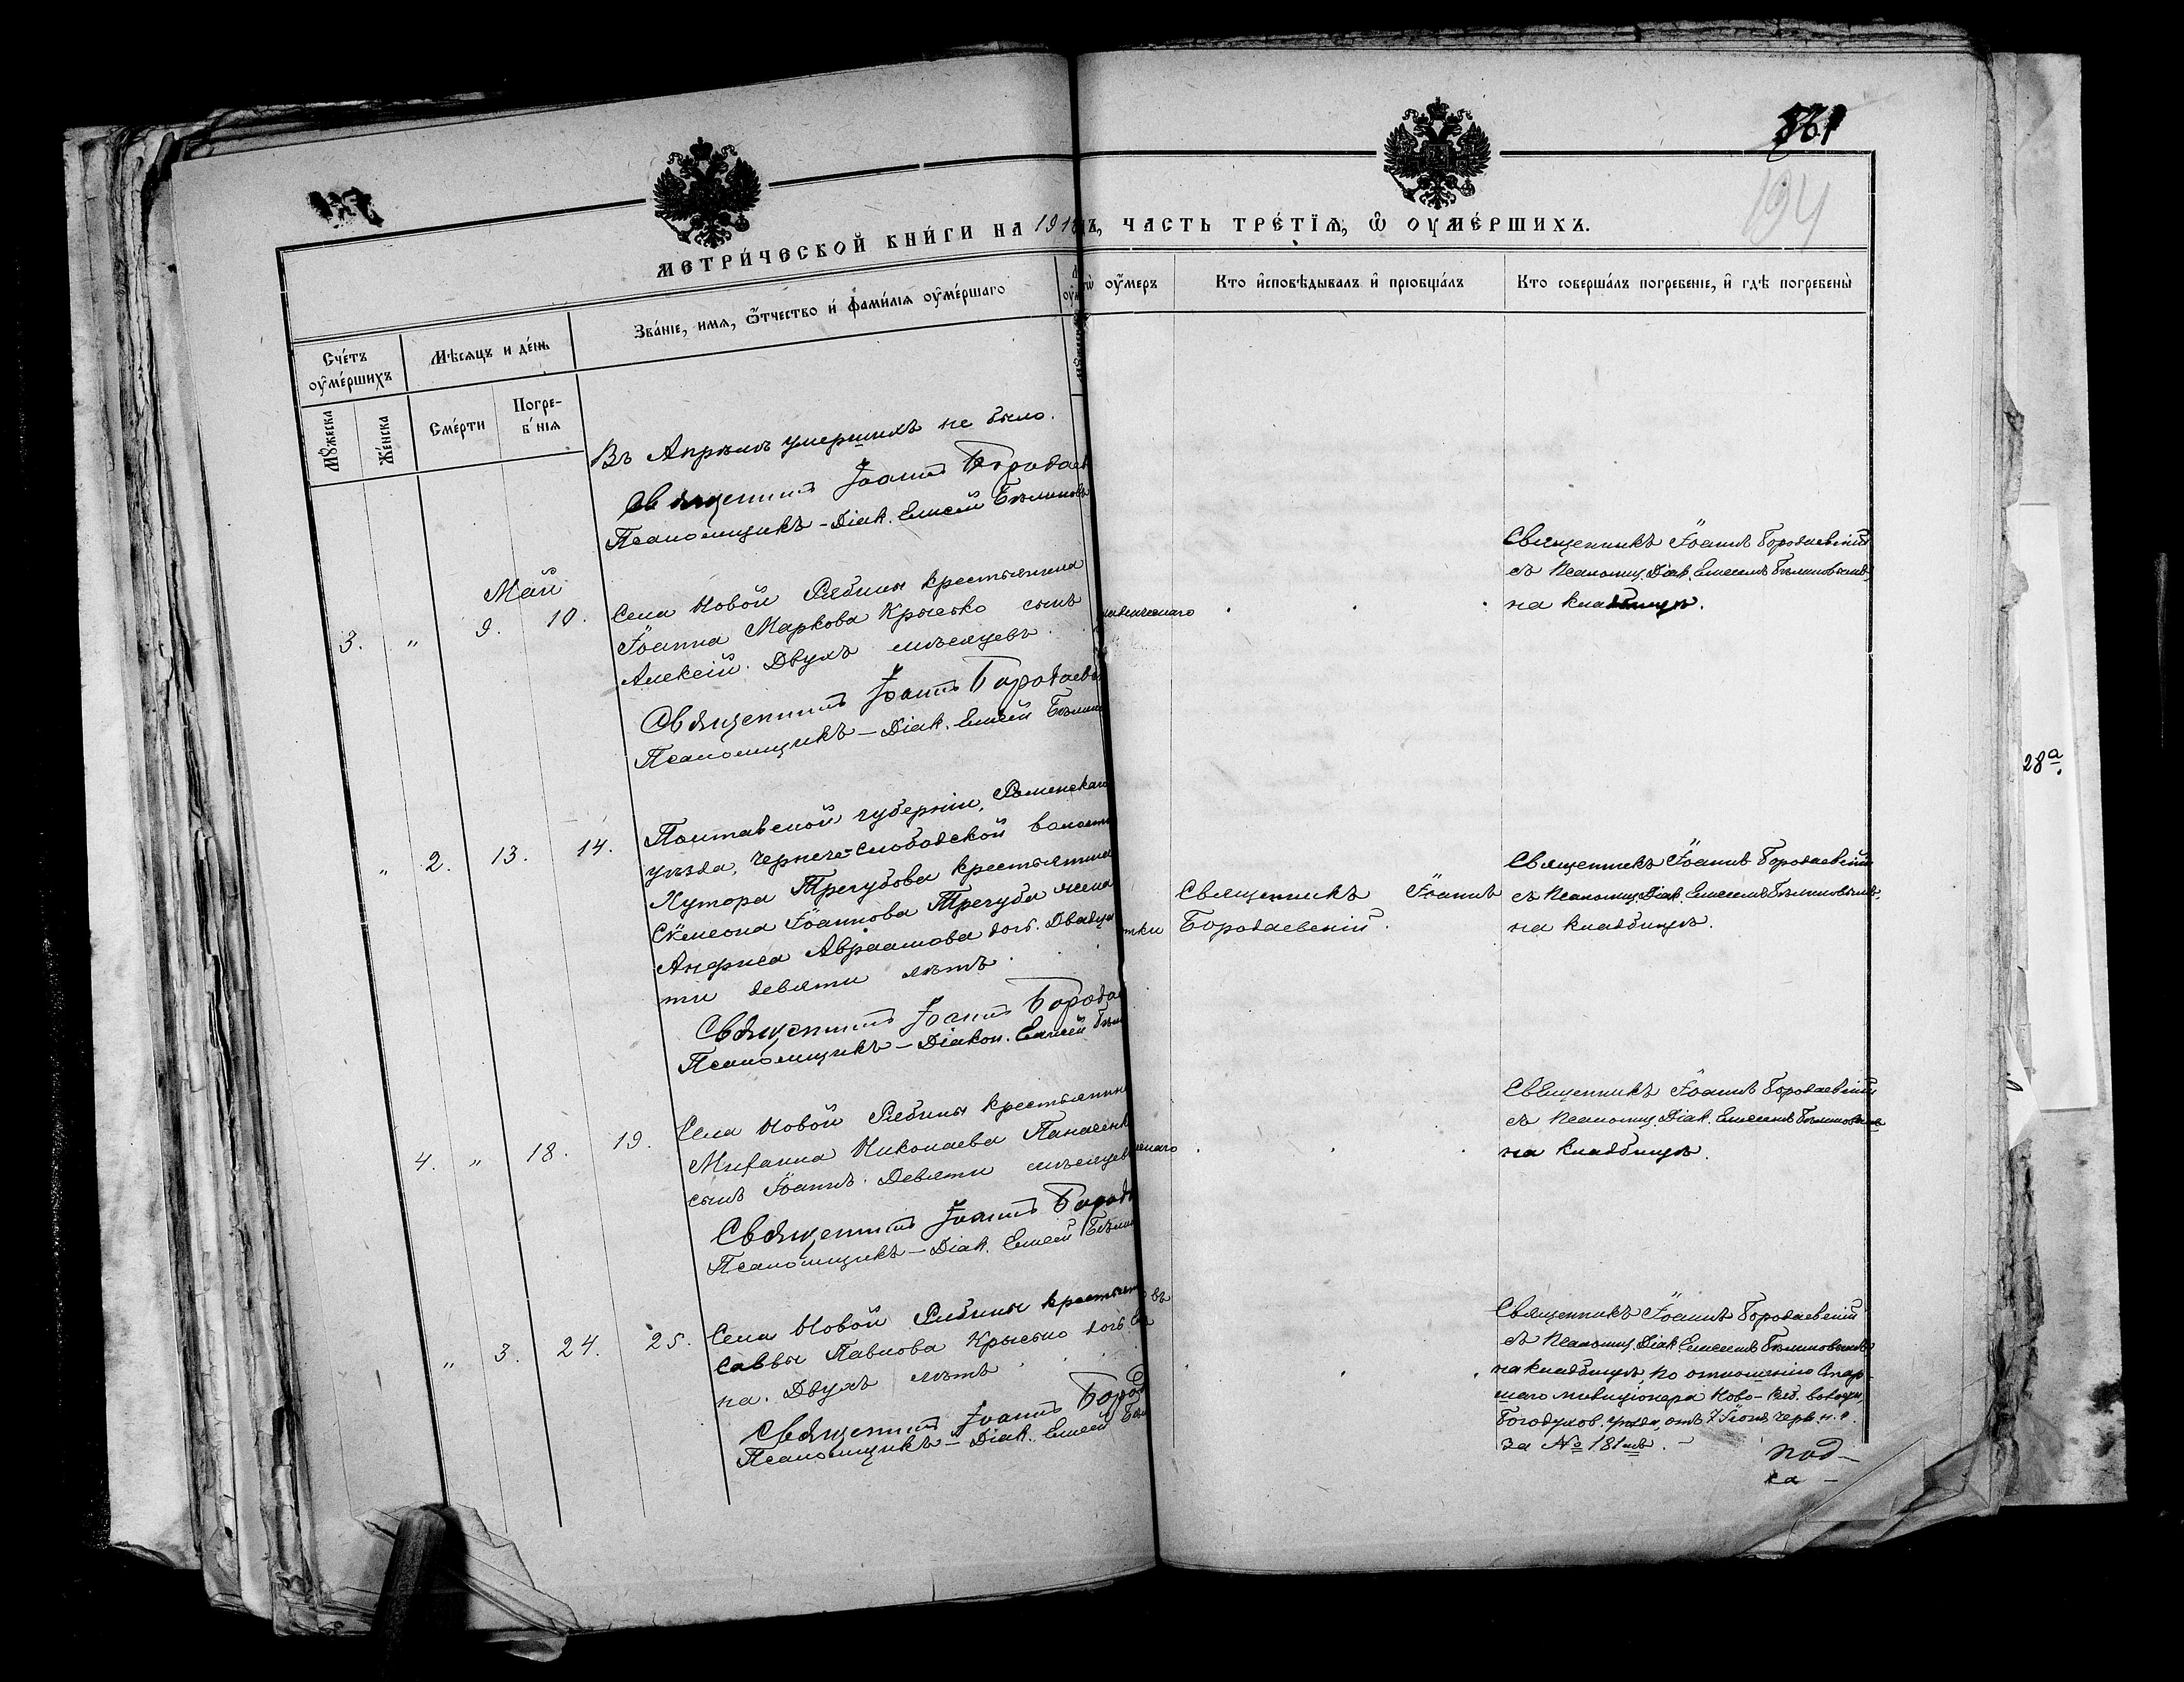 561
194
МЕТРИ́ЧЕСКОЙ КНИ́ГИ НА 1918
Ъ, ЧАСТЬ ТРЕ́ТЇѦ, Ѿ ОУМЕ́РШИХЪ.
Сче́тъ оуме́ршихъ
Мꙋ́жеска
Же́нска
Мѣсѧцъ и де́нь
Сме́рти
Погребе́нїѧ
Зва́нїе, имѧ, ѿтчество и фами́лїѧ оуме́ршаго
оу́меръ
Кто исповѣдывалъ и прїобща́лъ
Кто соверша́лъ погребенїе, и гдѣ погребены̀
Въ Апрѣлѣ умершихъ не было.
Священникъ Іоаннъ Бородаев
Псаломщикъ - Діак. Елисей Бѣлиновъ
Май
3. " 9. 10.
Села Новой Рябины крестьянина
Іоанна Маркова Крысько сынъ
Алексій. Двухъ мѣсяцевъ.
Священникъ Іоаннъ Бородаев
Псаломщикъ - Діак. Елисей Бѣлин
Священникъ Іоаннъ Бородаевскій
съ Псаломщ. Діак. Елисеемъ Бѣлиновымъ,
на кладбищѣ.
" 2. 13. 14.
Полтавской губерніи, Роменскаго
уѣзда, Чернече-Слободской волости
Хутора Трегубова крестьянина
Сѵмеона Іоаннова Трегуба жена
Анфиса Авраамова доч. Двадца
ти девяти лѣтъ.
Священникъ Іоаннъ Бородае
Псаломщикъ - Діакон. Елисей Бѣл
Священникъ Іоаннъ
Бородаевскій.
Священникъ Іоаннъ Бородаевскій
съ Псаломщ. Діак. Елисеемъ Бѣлиновымъ,
на кладбищѣ.
4. " 18. 19.
Села Новой Рябины крестьянина
Михаила Николаева Панасенк
сынъ Іоаннъ. Девяти мѣсяцев
Священникъ Іоаннъ Борода
Псаломщикъ - Діак. Елисей Бѣлин
Священникъ Іоаннъ Бородаевскій
съ Псаломщ. Діак. Елисеемъ Бѣлиновымъ
на кладбищѣ.
" 3. 24. 25.
Села Новой Рябины крестьян
Саввы Павлова Крысько доч.
на. Двухъ лѣтъ
Священникъ Іоаннъ Бород
Псаломщикъ - Діак. Елисей Бѣл
Священникъ Іоаннъ Бородаевскій
съ Псаломщ. Діак. Елисеемъ Бѣлиновымъ,
на кладбищѣ, по отношенію Стар-
шаго милиціонера Ново-Ряб. волости,
Богодухов. уѣзда, отъ 7 Іюня н. с.
за № 181мъ. -
28а.